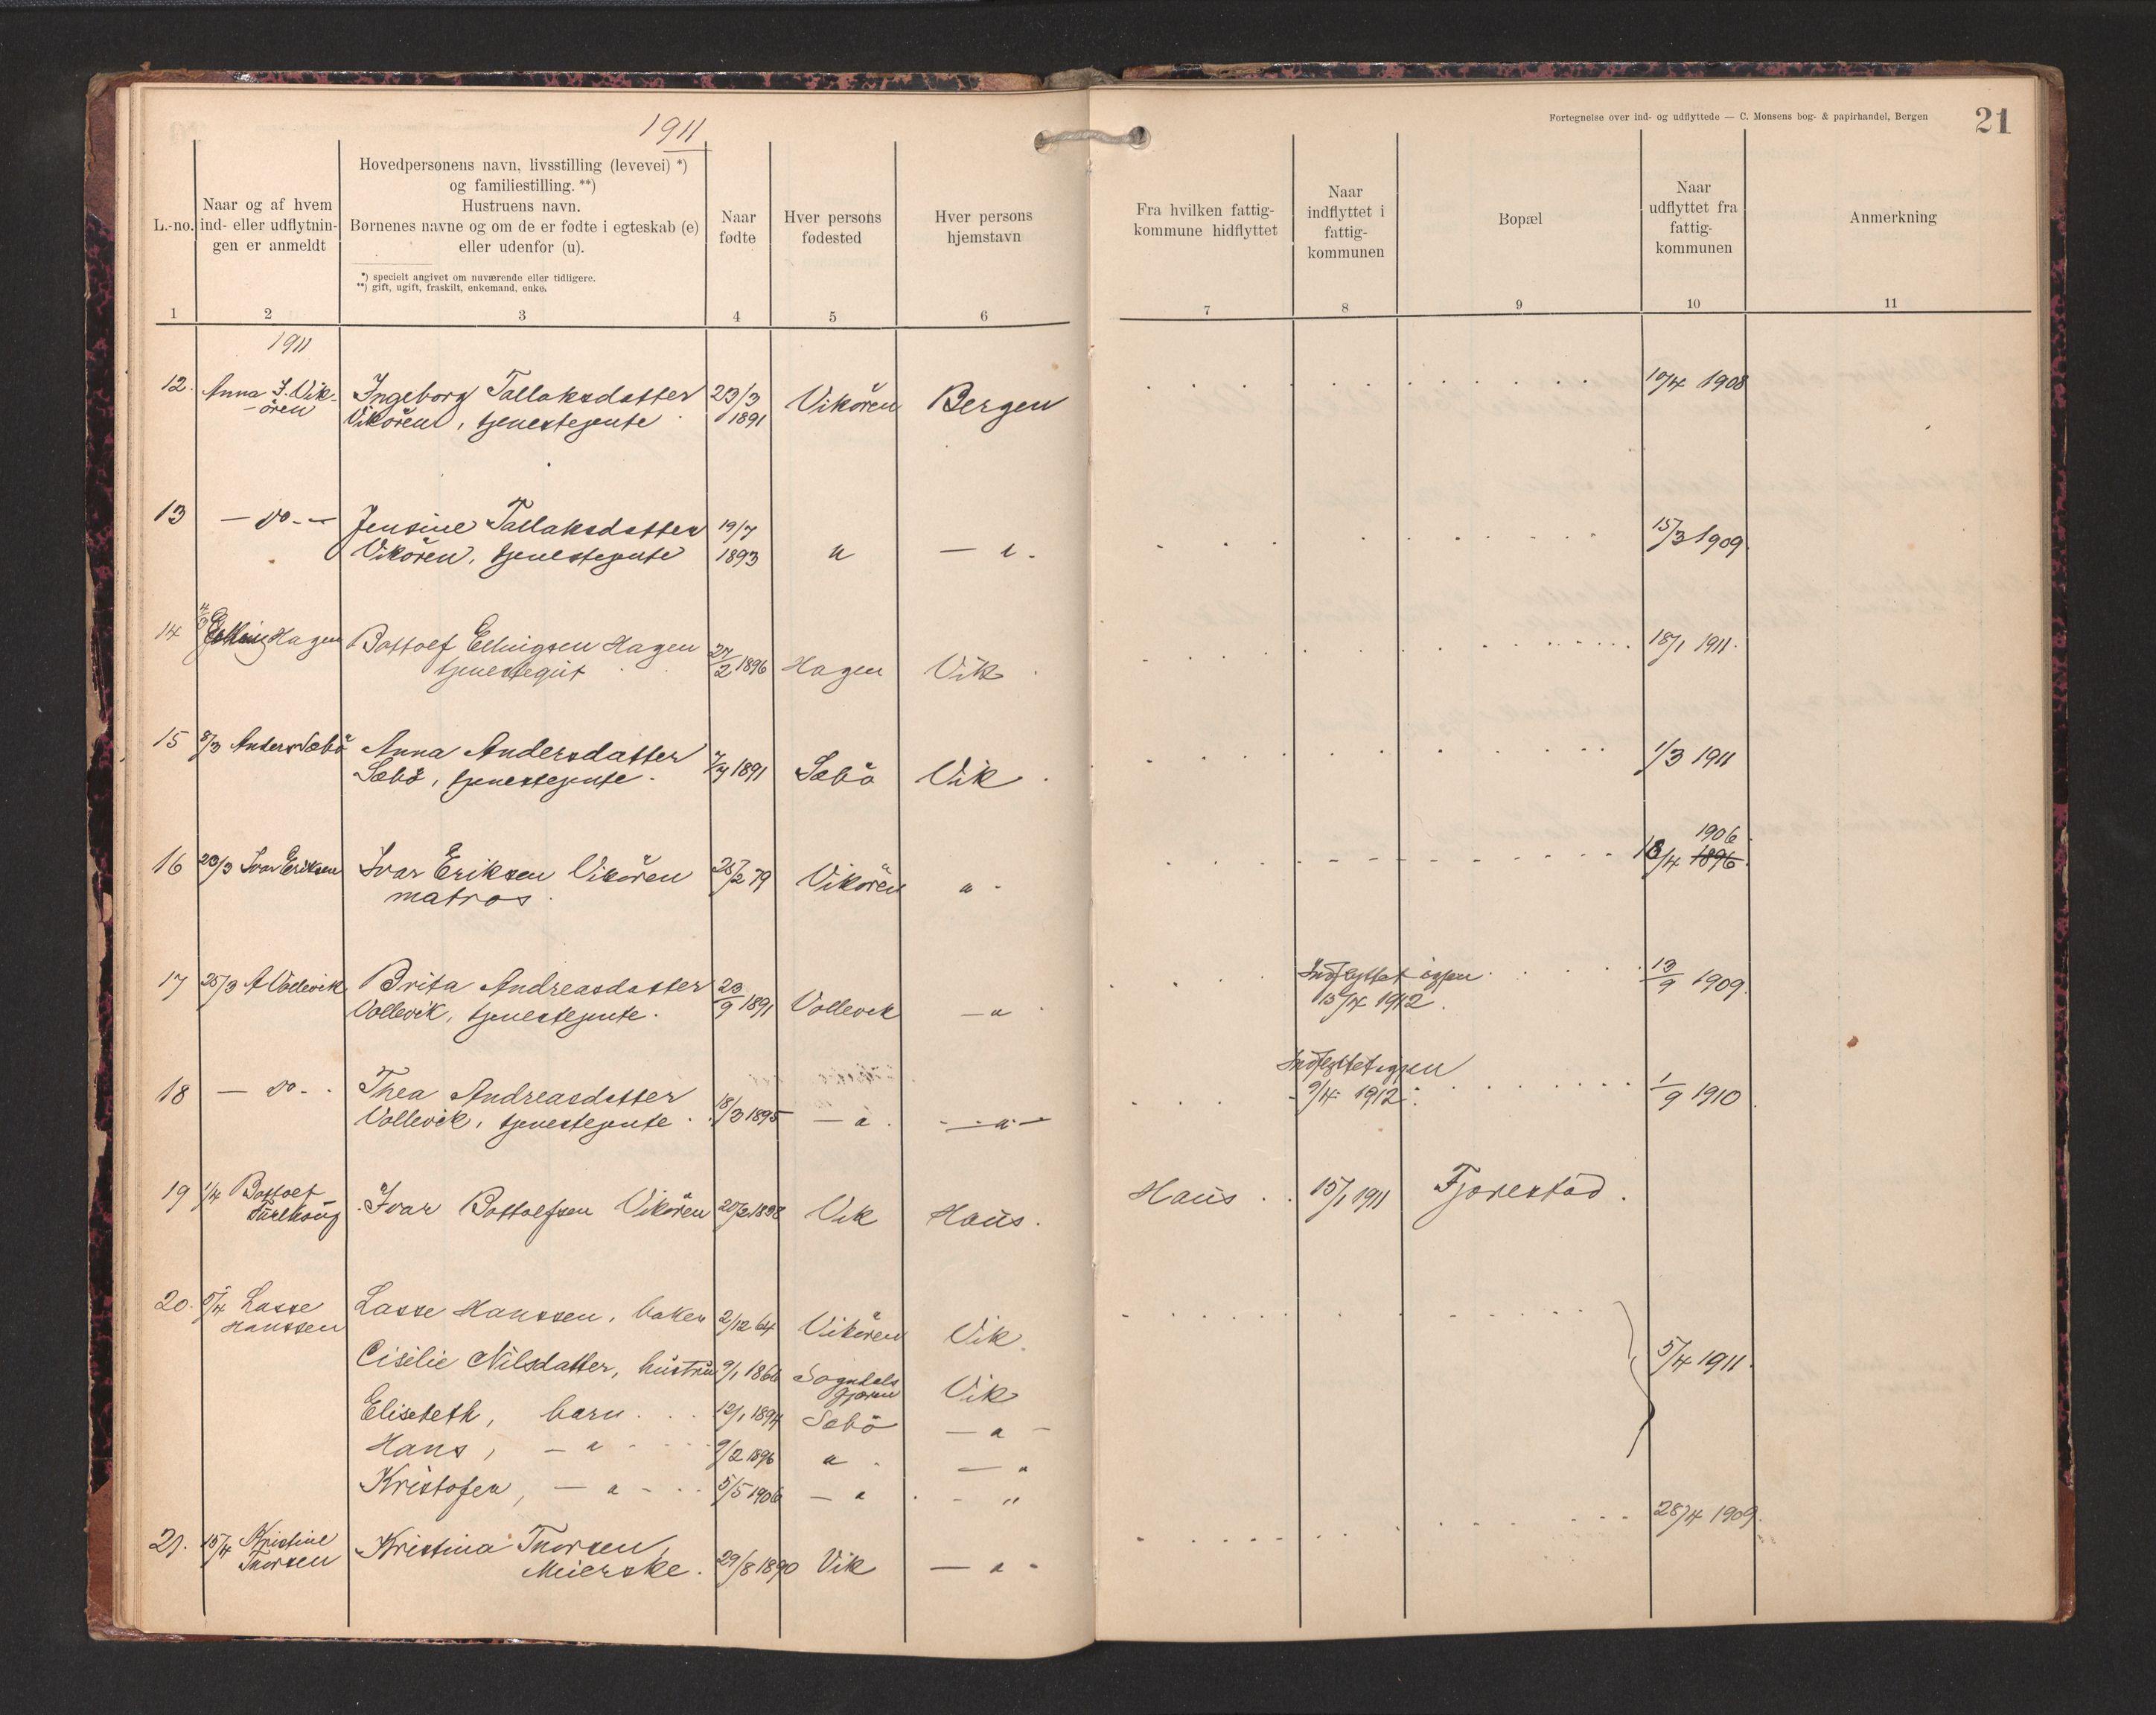 1911
Fortegnelse over ind- og udflyttede — C. Monsens bog- & papirhandel, Bergen
21
L.-no.
Naar og af hvem
ind- eller udflytnin-
gen er anmeldt
Hovedpersonens navn, livsstilling (levevei) *)
og familiestilling. **)
Hustruens navn.
Børnenes navne og om de er fødte i egteskab (e)
eller udenfor (u).
*) specielt angivet om nuværende eller tidligere.
**) gift, ugift, fraskilt, enkemand, enke.
Naar
fødte
Hver persons
fødested
Hver persons
hjemstavn
Fra hvilken fattig-
kommune hidflyttet
Naar
indflyttet i
fattig-
kommunen
Bopæl
Naar
udflyttet fra
fattig-
kommunen
Anmerkning
1 2 3 4 5 6 7 8 9 10 11
1911
12. Anna I. Vik- Ingeborg Tallaksdatter 23/3 Vikören Bergen 10/4 1908
ören Vikören, tjenestejente 1891
13 — do - — Jensine Tallaksdatter 19/7 15/3 1909
Vikören, tjenestejente 1893 " — " -
14 Hagen Bottolf Ellingsen Hagen 27/2 1896 Hagen Vik 18/1 1911
tjenestegut
15 8/3 Anders Sæbö Anna Andersdatter 7/4 1891 Sæbö Vik 1/3 1911
Sæbö, tjenestejente
16 23/3 Ivar Eriksen Ivar Eriksen Vikören 28/2 79 Vikören " - 1906
matros 18/4 1896
17 25/3 A Vollevik Brita Andreasdatter 23/9 1891 Vollevik — " Indflyttet igjen 13/9 1909
Vollevik, tjenestejente. 15/4 1912.
18 — do - Thea Andreasdatter 18/3 1895 — " — " — Indflyttet igjen 1/9 1910
Vollevik, tjenestejente 9/4 1912
19 1/4 Bottolf Ivar Bottolfsen Vikören 20/2 1898 Vik Haus. Haus 15/1 1911 Fjærestad.
20. 5/4 Lasse Lasse Hanssen, baker 2/12 64 Vikören Vik.
Hanssen
Cisilie Nilsdatter, hustru 9/1 1866 Sogndals Vik 5/4 1911
fjæren
Elisebeth, barn 12/1 1894 Sæbö — " -
Hans, — " - 9/2 1896 " — "
Kristofer, — " - 5/5 1906 — " - "
21. 15/4 Kristine Kristina Thorsen, 29/8 1890 Vik — " - 28/4 1909
Thorsen Meierske.